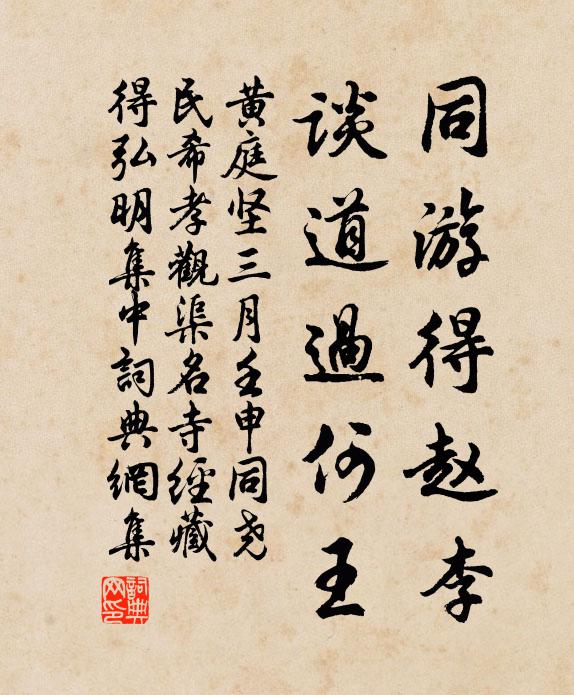 同游得赵李
谈道過何王
黄庭坚三月壬申同尧
民希孝觀渠名寺經藏
得弘明集中詞典網集
詞典網印